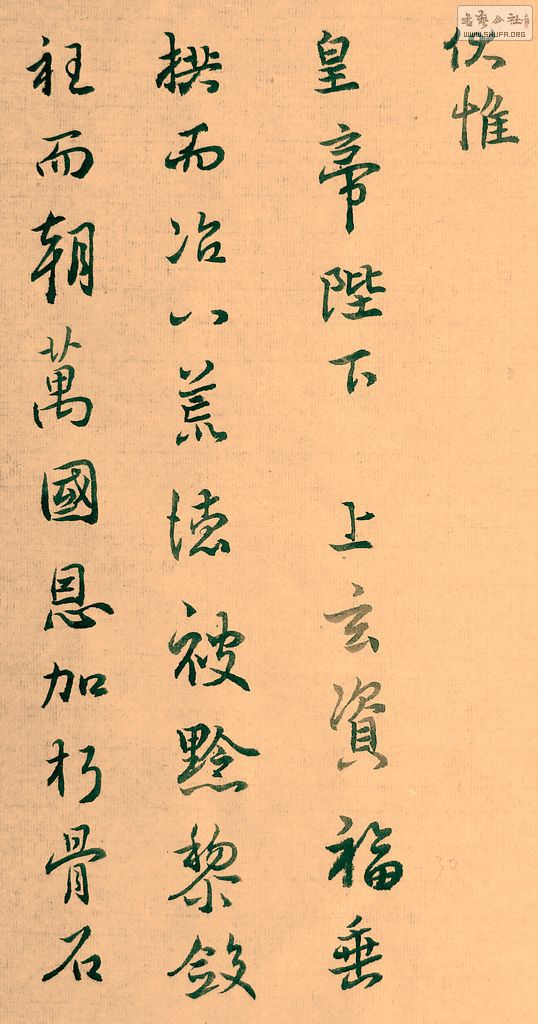 伏惟
皇帝陛下 上玄資福垂
拱而治八荒德被黔黎斂
衽而朝萬國恩加朽骨石
書藝公社
WWW.SHUFA.ORG